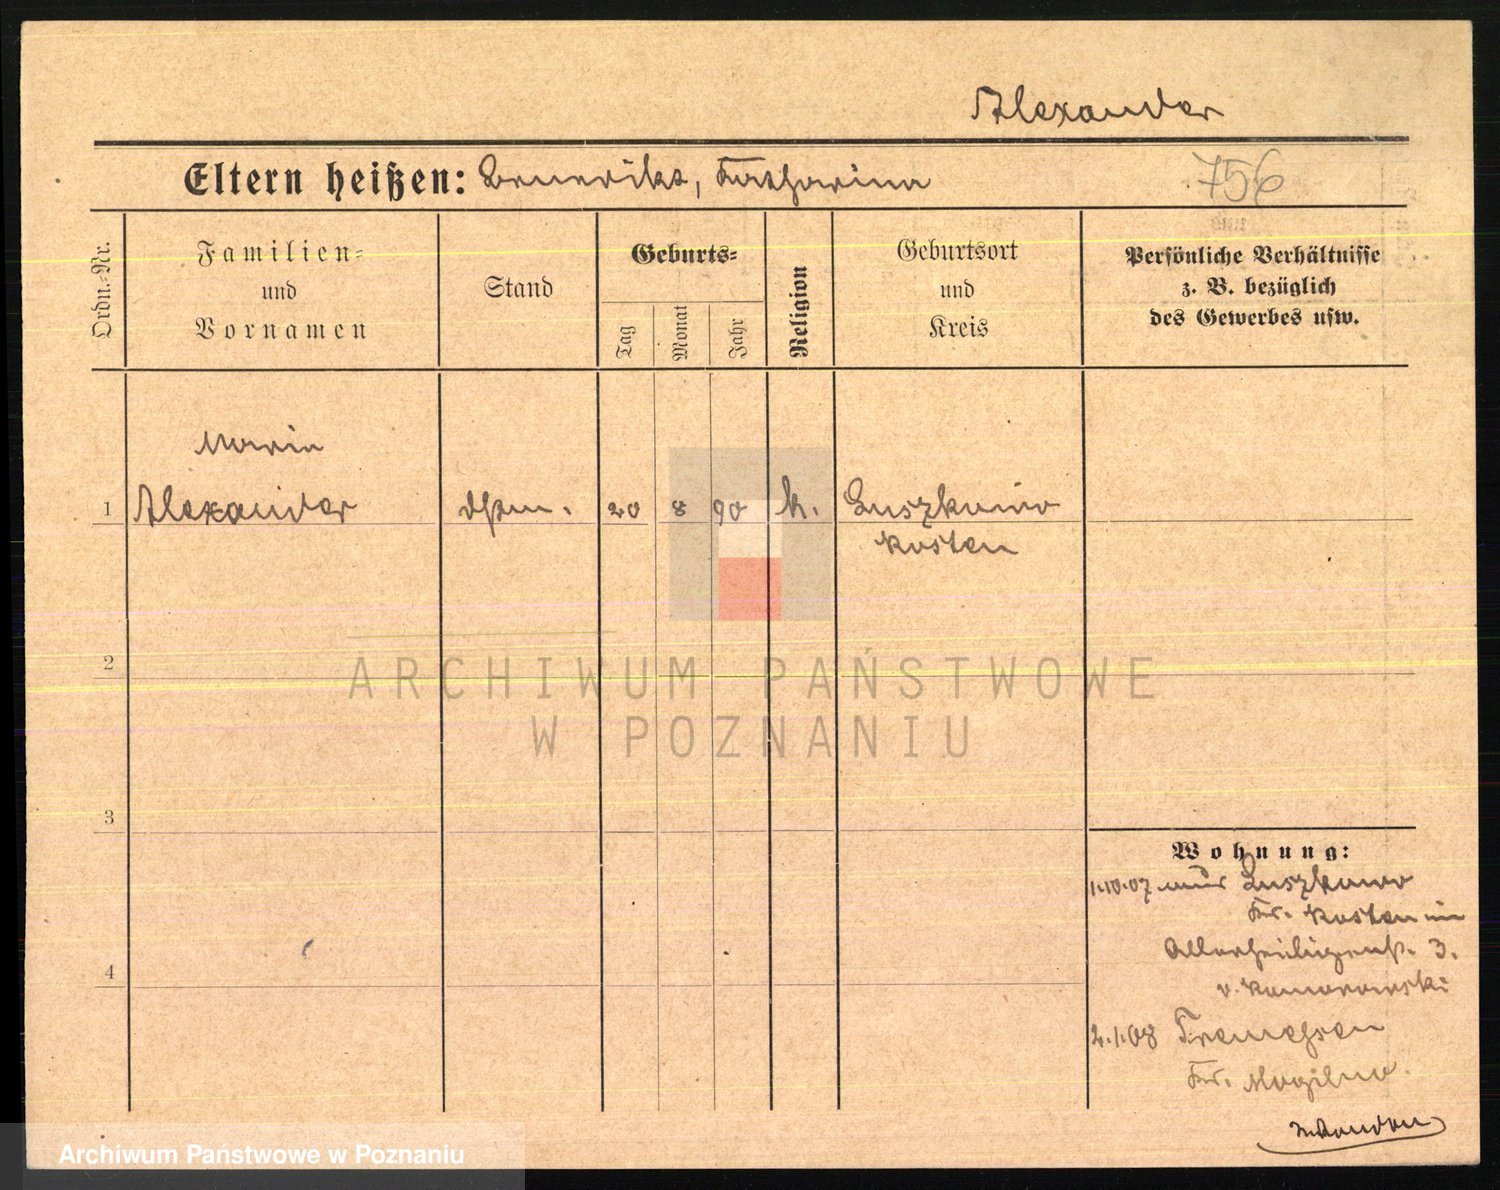 Alexander
Eltern heißen: Benedikt, Katharina
756
Ordn.-Nr.
Familien-
und
Vornamen
Stand
Geburts-
Tag
Monat
Jahr
Religion
Geburtsort
und
Kreis
Persönliche Verhältnisse
z. B. bezüglich
des Gewerbes usw.
Maria
1 Alexander
20 8 90 k. Luszkowo
Kosten
2
ARCHIWUM PAŃSTWOWE
W POZNANIU
3
Wohnung:
1.10.07 aus Luszkowo
Kr. Kosten in
Allerheiligenst. 3.
v. Komorowski
2.1.08
Kr. Mogilno.
4
Archiwum Państwowe w Poznaniu